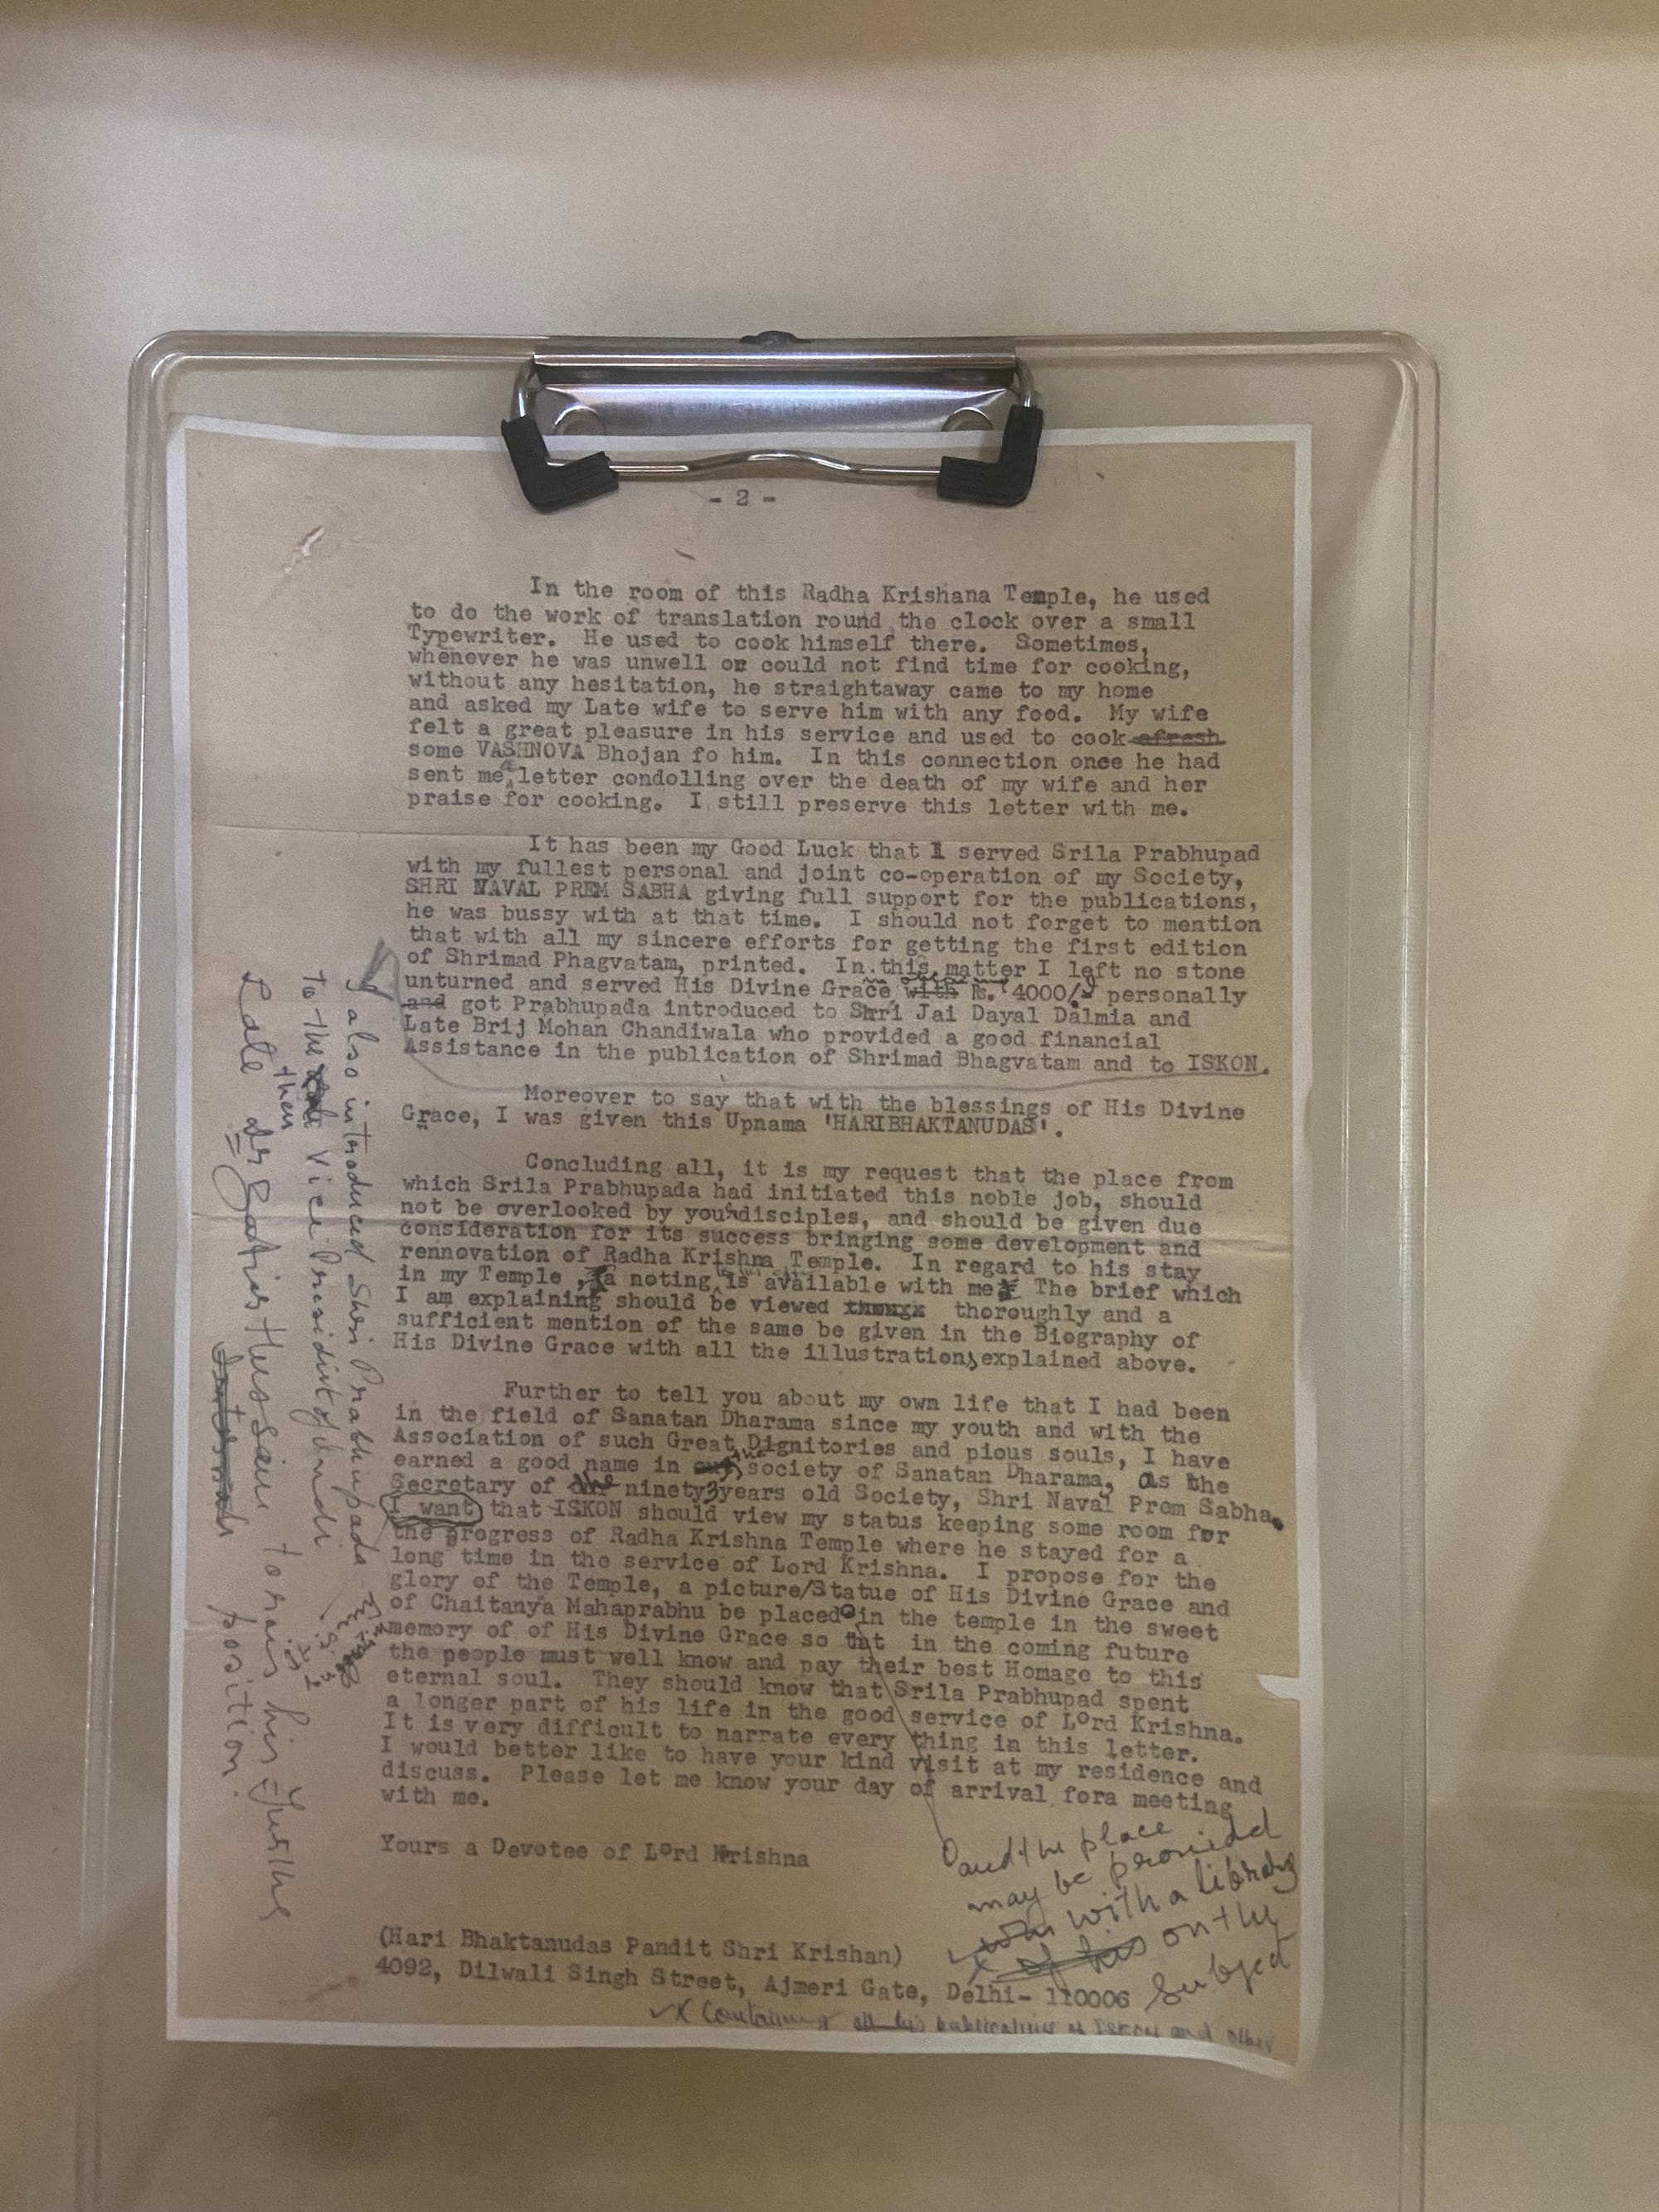 - 2 -
In the room of this Radha Krishana Temple, he used
to do the work of translation round the clock over a small
Typewriter. He used to cook himself there. Sometimes,
whenever he was unwell or could not find time for cooking,
without any hesitation, he straightaway came to my home
and asked my Late wife to serve him with any food. My wife
felt a great pleasure in his service and used to cook afresh
some VASHNOVA Bhojan fo him. In this connection once he had
sent me a letter condolling over the death of my wife and her
praise for cooking. I still preserve this letter with me.
It has been my Good Luck that I served Srila Prabhupad
with my fullest personal and joint co-operation of my Society,
SHRI NAVAL PREM SABHA giving full support for the publications,
he was bussy with at that time. I should not forget to mention
that with all my sincere efforts for getting the first edition
of Shrimad Phagvatam, printed. In this matter I left no stone
unturned and served His Divine Grace with Rs. 4000/- personally
and got Prabhupada introduced to Shri Jai Dayal Dalmia and
Late Brij Mohan Chandiwala who provided a good financial
Assistance in the publication of Shrimad Bhagvatam and to ISKON.
Moreover to say that with the blessings of His Divine
Grace, I was given this Upnama 'HARIBHAKTANUDAS'.
Concluding all, it is my request that the place from
which Srila Prabhupada had initiated this noble job, should
not be overlooked by your disciples, and should be given due
consideration for its success bringing some development and
rennovation of Radha Krishna Temple. In regard to his stay
in my Temple, a noting is available with me The brief which
I am explaining should be viewed thoroughly and a
sufficient mention of the same be given in the Biography of
His Divine Grace with all the illustrations explained above.
Further to tell you about my own life that I had been
in the field of Sanatan Dharama since my youth and with the
Association of such Great Dignitories and pious souls, I have
earned a good name in the society of Sanatan Dharama, as the
Secretary of ninety 3 years old Society, Shri Naval Prem Sabha.
I want that ISKON should view my status keeping some room for
the progress of Radha Krishna Temple where he stayed for a
long time in the service of Lord Krishna. I propose for the
glory of the Temple, a picture/Statue of His Divine Grace and
of Chaitanya Mahaprabhu be placed in the temple in the sweet
memory of of His Divine Grace so tht in the coming future
the people must well know and pay their best Homage to this
eternal soul. They should know that Srila Prabhupad spent
a longer part of his life in the good service of Lord Krishna.
It is very difficult to narrate every thing in this letter.
I would better like to have your kind visit at my residence and
discuss. Please let me know your day of arrival fora meeting
with me.
Yours a Devotee of Lord Krishna
and the place
may be provided
with a library
of his on the
Subject
(Hari Bhaktanudas Pandit Shri Krishan)
4092, Dilwali Singh Street, Ajmeri Gate, Delhi- 110006
x Containing all his publication of ISKON and other
I also introduced Shri Prabhupada
to the then Vice President of India
Late Dr Hussain to rais his further
position.